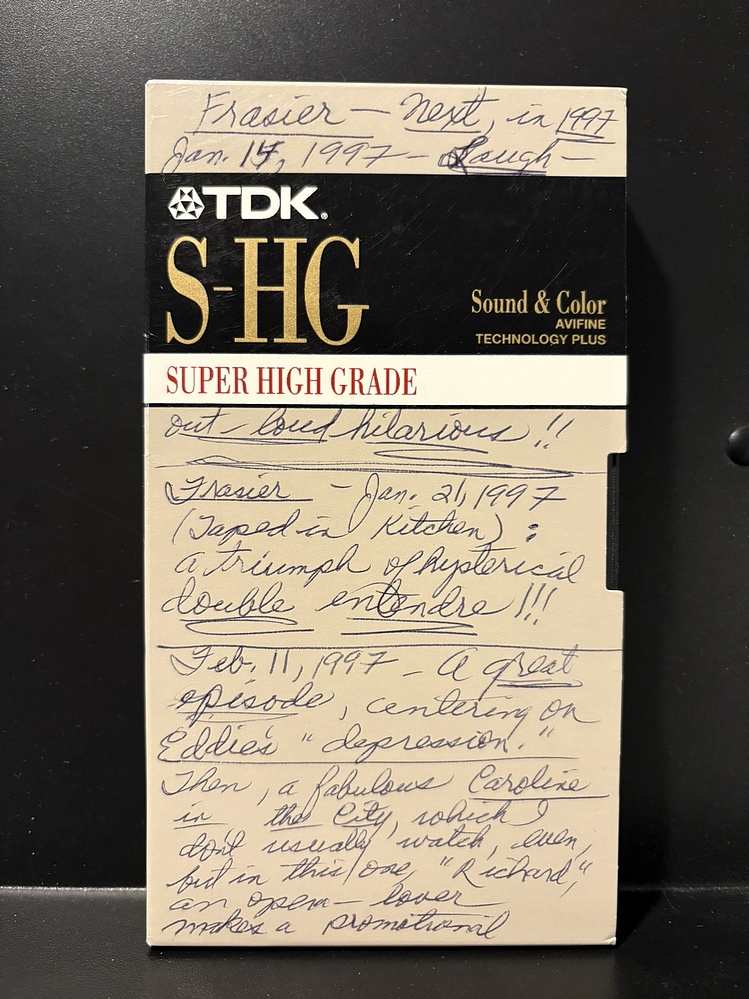 Frasier – Next, in 1997
Jan. 14, 1997 – Laugh –
TDK.
S-HG
Sound & Color
AVIFINE
TECHNOLOGY PLUS
SUPER HIGH GRADE
out-loud hilarious!!
Frasier – Jan. 21, 1997
(Taped in Kitchen):
a triumph of hysterical
double entendre!!!
Feb. 11, 1997 – A great
episode, centering on
Eddie's "depression."
Then, a fabulous Caroline
in the City, which I
don't usually watch, even,
but in this one, "Richard,"
an open-lover
makes a promotional